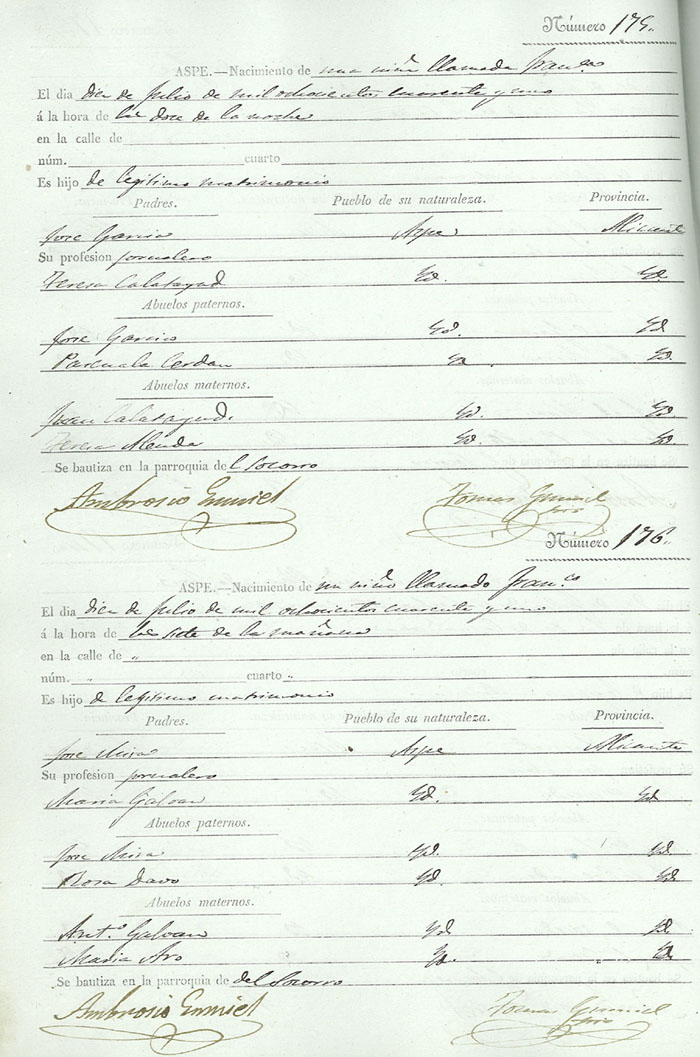 Número 175.
ASPE.—Nacimiento de una niña llamada Fran.ca
El dia diez de Julio de mil ochocientos cuarenta y uno
á la hora de las doce de la noche
en la calle de
núm. cuarto
Es hijo de legitimo matrimonio
Padres. Pueblo de su naturaleza. Provincia.
Jose Garcia Aspe Alicante
Su profesion jornalero
Teresa Calatayud Yd. Yd.
Abuelos paternos.
Jose Garcia Yd. Yd.
Pascuala Cerdan Yd. Yd.
Abuelos maternos.
Juan Calatayud Yd. Yd.
Teresa Yd. Yd.
Se bautiza en la parroquia del Socorro
Ambrosio Tomas
Número 176.
ASPE.—Nacimiento de un niño llamado Fran.co
El dia diez de Julio de mil ochocientos cuarenta y uno
á la hora de las siete de la mañana
en la calle de „
núm. „ cuarto „
Es hijo de legitimo matrimonio
Padres. Pueblo de su naturaleza. Provincia.
Jose Mira Aspe Alicante
Su profesion jornalero
Maria Galvan Yd. Yd.
Abuelos paternos.
Jose Mira Yd. Yd.
Rosa Davo Yd. Yd.
Abuelos maternos.
Ant.o Galvan Yd. Yd.
Maria Yd. Yd.
Se bautiza en la parroquia de del Socorro
Ambrosio Tomas